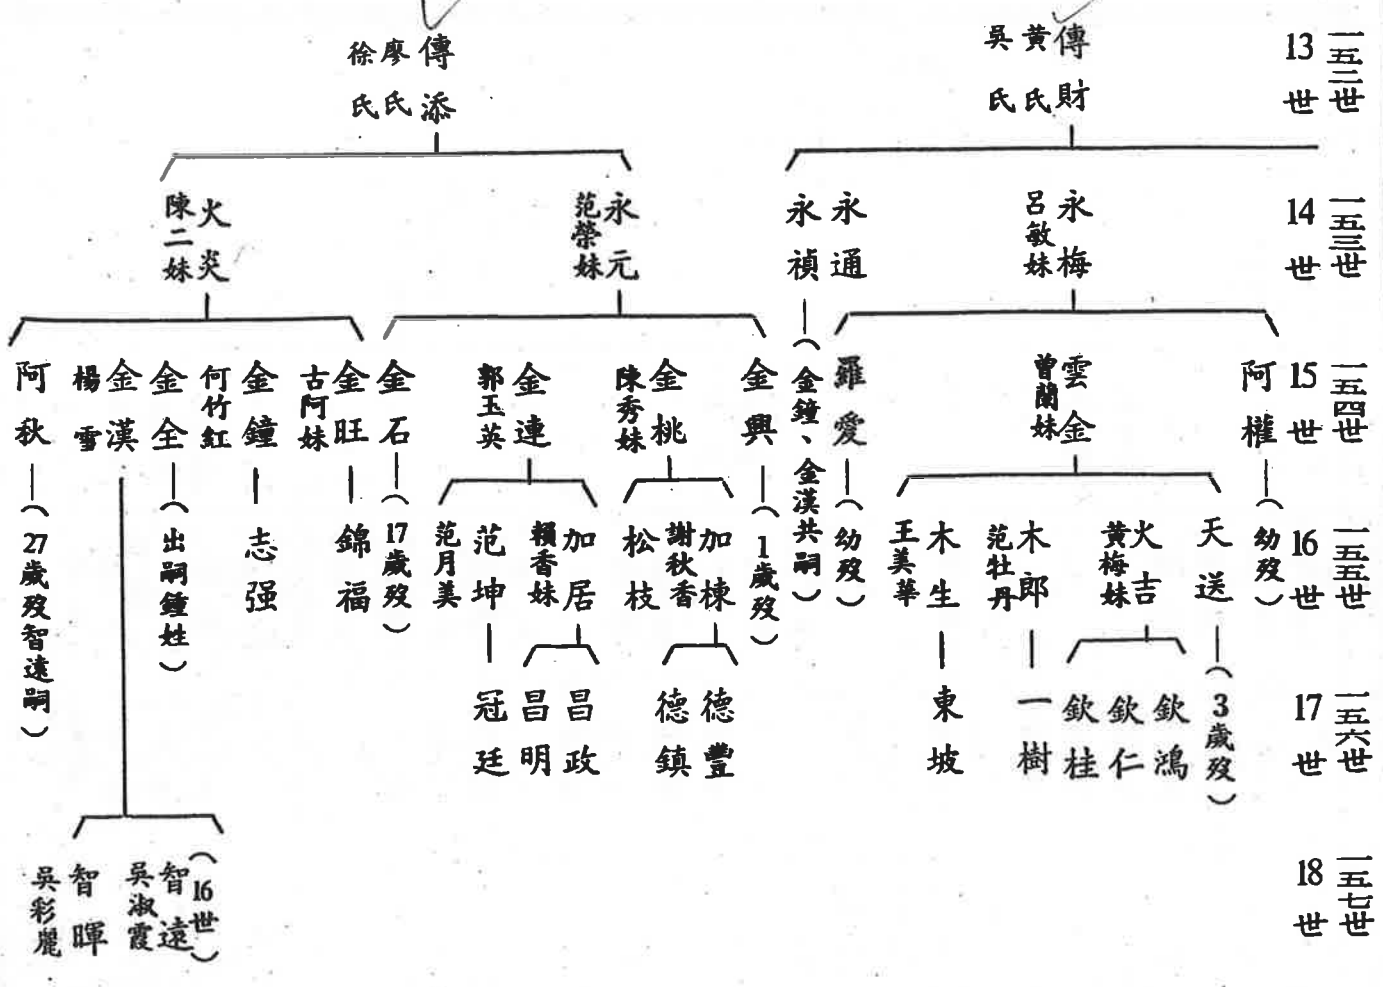 一五二世
13世
傳財
黃氏
吳氏
傳添
廖氏
徐氏
一五三世
14世
永梅
呂敏妹
永通
永禎
永元
范榮妹
火炎
陳二妹
一五四世
15世
阿權
(幼歿)
雲金
曾蘭妹
羅愛
(幼歿)
(金鐘、金漢共嗣)
金興
(1歲歿)
金桃
陳秀妹
金連
郭玉英
金石
(17歲歿)
金旺
古阿妹
金鐘
何竹紅
金全
(出嗣鍾姓)
金漢
楊雪
阿秋
(27歲歿智遠嗣)
一五五世
16世
天送
(3歲歿)
火吉
黃梅妹
木郎
范牡丹
木生
王美華
加棟
謝秋香
松枝
加居
賴香妹
范坤
范月美
錦福
志强
一五六世
17世
欽鴻
欽仁
欽桂
一樹
東坡
德豐
德鎮
昌政
昌明
冠廷
一五七世
18世
(16世)
智遠
吳淑霞
智暉
吳彩麗